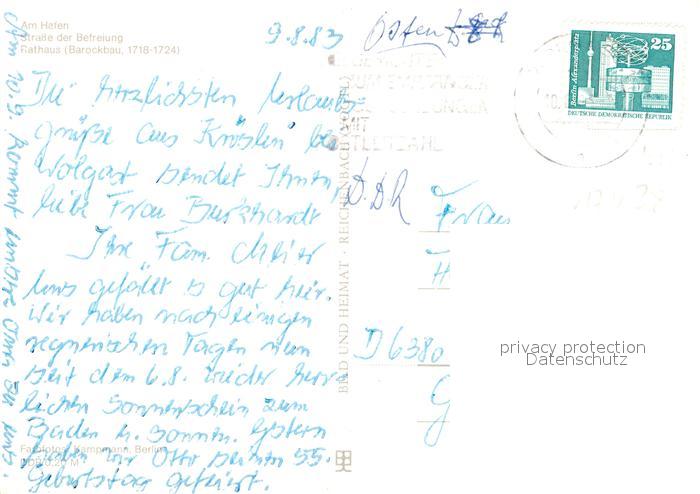 Am Hafen
Straße der Befreiung
Rathaus (Barockbau, 1718-1724)
9.8.83
Die herzlichsten Urlaubs=
grüße aus Kröslin bei
Wolgast sendet Ihnen,
liebe Frau Burkhardt
Ihre Fam.
Uns gefällt es gut hier.
Wir haben nach einigen
regnerischen Tagen nun
seit dem 6.8. wieder herr=
lichen Sonnenschein zum
Baden u. Sonnen. Gestern
haben wir Otto seinen 55.
Geburtstag gefeiert.
Am 10.9. kommt unsere Oma zu uns.
Farbfotos: Kampmann, Berlin
BILD UND HEIMAT · REICHENBACH (VOGTL)
Osten
DDR
Berlin Alexanderplatz
25
DEUTSCHE DEMOKRATISCHE REPUBLIK
Frau
H
D 6380
G
privacy protection
Datenschutz